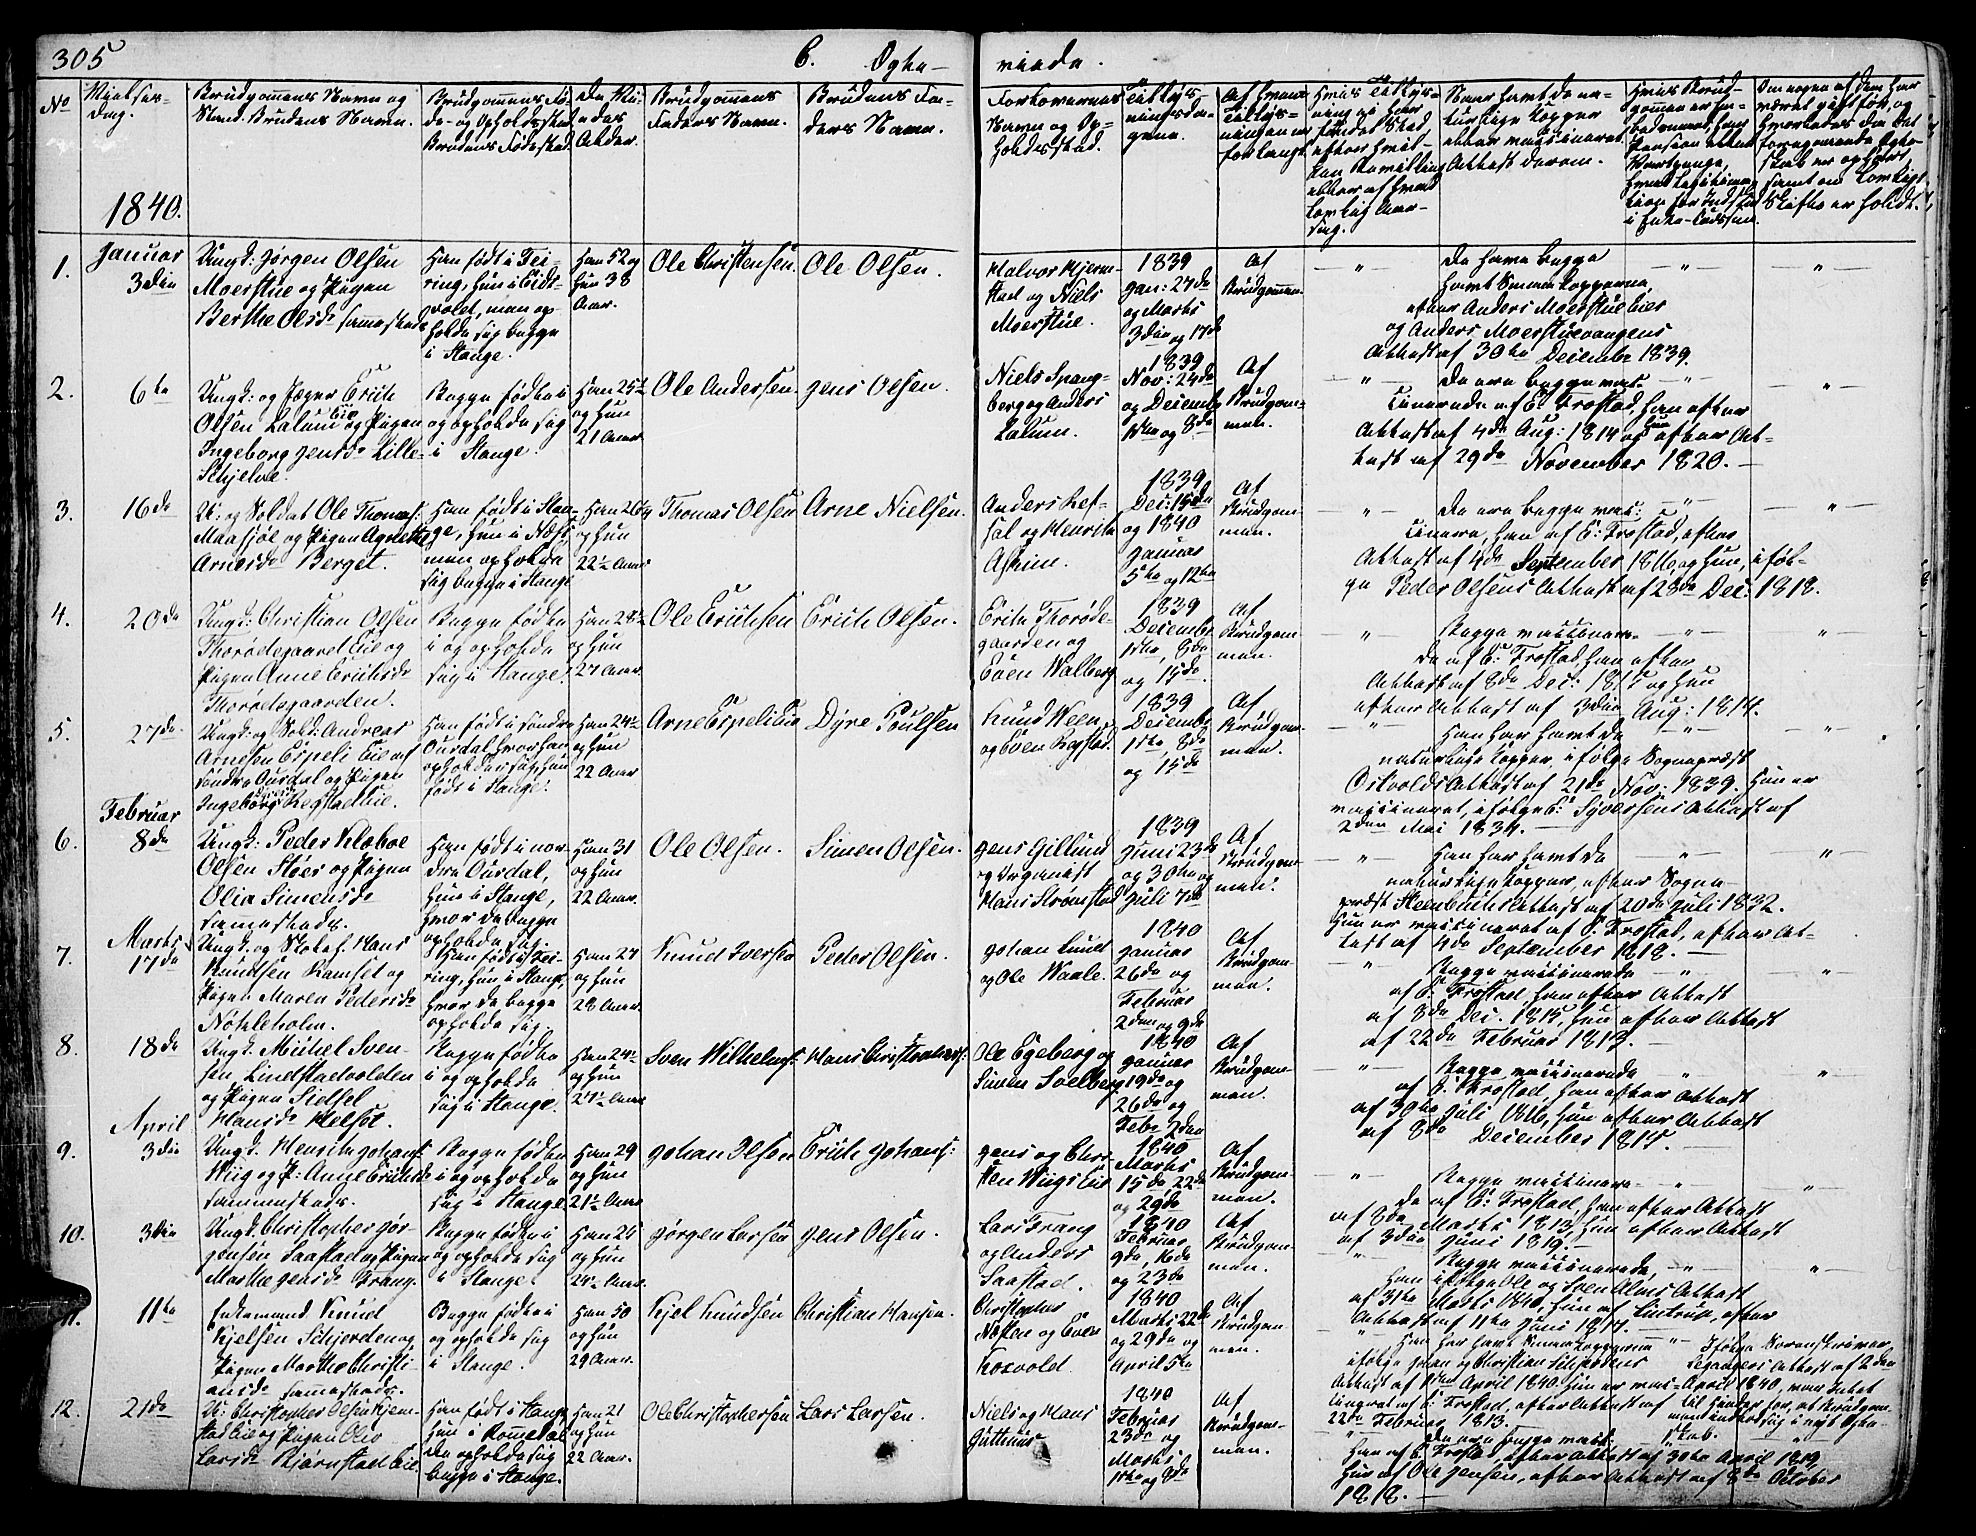 305
6. Ægte-
viede.
No
Vielses-
dag.
Brudgommens Navn og
Stand. Brudens Navn.
Brudgommens Fø-
de- og Opholdssted
Brudens Fødested
De Vi-
edes
Alder.
Brudgommens
Faders Navn.
Brudens Fa-
ders Navn.
Forlovernes
Navn og Op-
holdssted.
Tillys-
ningsda-
gene.
Af hvem
Tillys-
ningen er
forlangt.
Naar havt de na-
turlige Kopper
eller vaccineret
Attest derom.
1840.
1.
Januar
3die
Ungk: Jørgen Olsen
Moerstue og Pigen
Berthe Olsdr sammesteds
Han født i Fei-
ring, hun i Eidt-
vold, men op-
holde sig begge
i Stange.
Han 52 og
hun 38
Aar.
Ole Christensen.
Ole Olsen.
Halvor Hjerm-
stad og Niels
Moerstue.
1839
Jan: 27de
og Marts
3die og 17de
Af
Brudgommen
De have begge
havt Smaakopperne,
efter Anders Moerstue Eies
og Anders Moerstuevangens
Attest af 30te December 1839.
2.
6te
Ungk: og Jæger Erich
Olsen Lalum Eie og Pigen
Ingeborg Jensdr Lille-
Schjelve.
Begge fødte i
og opholde sig
i Stange.
Han 25½
og hun
21 Aar.
Ole Andersen.
Jens Olsen.
Niels Spang-
berg og Anders
Lalum.
1839
Nov: 24de
og Decemb
1ste og 8de
Af
Brudgom-
men.
De ere begge vac-
cinerede af C: Frostad, han efter
Attest af 4de Aug: 1814 og hun efter At-
test af 29de November 1820.
3.
16de
U: og Soldat Ole Thomas:
Maasjøe og Pigen Agnethe
Arnesdr Berget.
Han født i Stan-
ge, hun i Næss
men opholde
sig begge i Stange
Han 26¼
og hun
22½ Aar.
Thomas Olsen
Arne Nielsen.
Anders Ref-
sal og Henrich
Askim.
1839
Dec: 15de
og 1840
Januar
5te og 12te
Af
Brudgom-
men.
De ere begge vac-
cinere, han af C: Frostad, efter
Attest af 4de September 1816 og hun, i føl-
ge Peder Olsens Attest af 28de Dec: 1818.
4.
20de
Ungk: Christian Olsen
Thorødegaard Eie og
Pigen Anne Erichsdr
Thorødegaarden.
Begge fødte
i og opholde
sig i Stange.
Han 28½
og hun
27 Aar.
Ole Erichsen
Erich Olsen.
Erich Thorøde-
gaarden og
Even Walberg
1839
December
1ste, 8de
og 15de
Af
Brudgom-
men.
Begge vaccinere-
de af C: Frostad, han efter
Attest af 8de Dec: 1815 og hun
efter Attest af 3die Aug: 1814.
5.
27de
Ungk: og Sold: Andreas
Arnesen Espeli Eie af
søndre Ourdal og Pigen
Ingeborg Regstad Eie.
Han født i søndre
Ourdal hvor han
opholder sig, hun
født i Stange.
Han 24½
og hun
22 Aar.
Arne Espeli Eie
Dyre Poulsen
Knud Ween
og Even Regstad.
1839
Decembr
1ste, 8de
og 15de
Af
Brudgom-
men.
Han har havt de
naturlige Kopper, i følge Sognepræst
Ostvolds Attest af 21de Nov: 1839. Hun er
vaccineret, i følge C: Syversens Attest af
2den Mai 1834.
Februar
6.
8de
Ungk: Peder Klæboe
Olsen Støer og Pigen
Olia Simensdr
sammesteds.
Han født i nor-
dre Ourdal,
hun i Stange,
hvor de begge
opholde sig.
Han 31
og hun
22 Aar.
Ole Olsen.
Simen Olsen.
Jens Gillund
og Organist
Hans Strømstad
1839
Juni 23de
og 30te og
Juli 7de
Af
Brudgom-
men.
Han har havt de
naturlige Kopper, efter Sogne-
præst Steenbuchs Attest af 20de Juli 1832.
Hun er vaccineret af C. Frostad, efter At-
test af 4de September 1818.
Marts
7.
17de
Ungk: og Skolef. Hans
Knudsen Ramset og
Pigen Maren Pedersdr
Nøkleholm.
Han født i Fei-
ring, hun i Stange,
hvor de begge
opholde sig.
Han 27
og hun
28 Aar.
Knud Iversen
Peder Olsen.
Johan Lund
og Ole Waale.
1840
Januar
26de og
Februar
2den og 9de
Af
Brudgom-
men.
Begge vaccinerede
af C: Frostad, han efter Attest
af 8de Dec. 1815, hun efter Attest
af 22de Februar 1813.
8.
18de
Ungk: Michel Sven-
sen Lindstadvolden
og Pigen Sidsel
Hansdr Helset.
Begge fødte
i og opholde
sig i Stange.
Han 24½
og hun
24½ Aar.
Sven Wilhelms:
Hans Christophers:
Ole Egeberg og
Svein Soelberg
1840
Januar
19de og
26de og
Febr 2den
Af
Brudgom-
men.
Begge vaccinerede
af C. Frostad, han efter Attest
af 30te Juli 1816, hun efter Attest
af 8de December 1815.
April
9.
3die
Ungk: Henrich Johans:
Wiig og P: Anne Erichsdr
sammesteds.
Begge fødte
i og opholde
sig i Stange
Han 29
og hun
21½ Aar.
Johan Olsen
Erich Johans:
Jens og Chri-
sten Wiigs Eie
1840
Marts
15de 22de
og 29de
Af
Brudgom-
men.
Begge vaccinere-
de af C: Frostad, han efter Attest
af 8de Marts 1813, hun efter Attest
af 3die Juni 1819.
10.
3die
Ungk: Christopher Jør-
gensen Saastad og Pigen
Marthe Jensdr Frang.
Begge fødte i
og opholde sig
i Stange.
Han 25
og hun
24½ Aar.
Jørgen Larsen
Jens Olsen.
Lars Frang
og Anders
Saastad.
1840
Februar
9de, 16de
og 23de
Af
Brudgom-
men.
Begge vaccinerede,
Han i følge Ole og Sven Alms Attest
af 31te Marts 1840, hun af Lintrup, efter
Attest af 11te Juni 1817.
11.
11te
Enkemand Knud
Kjelsen Schjerden og
Pigen Marthe Christi-
ansdr sammesteds.
Begge fødte i
og opholde sig
i Stange.
Han 50
og hun
29 Aar.
Kjel Knudsen
Christian Hansen.
Christopher
Nøsten og Even
Kosvold.
1840
Marts 22de
og 29de og
April 5te
Af
Brudgom-
men.
Han har havt Smaakopperne
i følge Johan og Christian Schjerdens
Attest af 11te April 1840. Hun er vac-
cineret af C. Frostad, efter Attest af
22de Februar 1813.
I følge Sorenskriver
Attest af 2den
April 1840, var Intet
til Hinder for, at Brudgom-
men indlod sig i nyt Ægte-
skab.
12.
21de
U: Christopher Olsen Hjem-
stad Eie og Pigen Oliv
Larsdr Bjørnstad Eie.
Han født i Stange,
hun i Romedal
De opholde sig
begge i Stange.
Han 21
og hun
22 Aar.
Ole Christophersen
Lars Larsen.
Niels og Hans
Guttuus
1840
Februar
23de og
Marts
1ste og 8de
Af
Brudgom-
men.
De ere begge vacc.
Han af C: Frostad, efter Attest af 30te April 1819,
Hun af Ole Jensen, efter Attest af 8de October
1818.